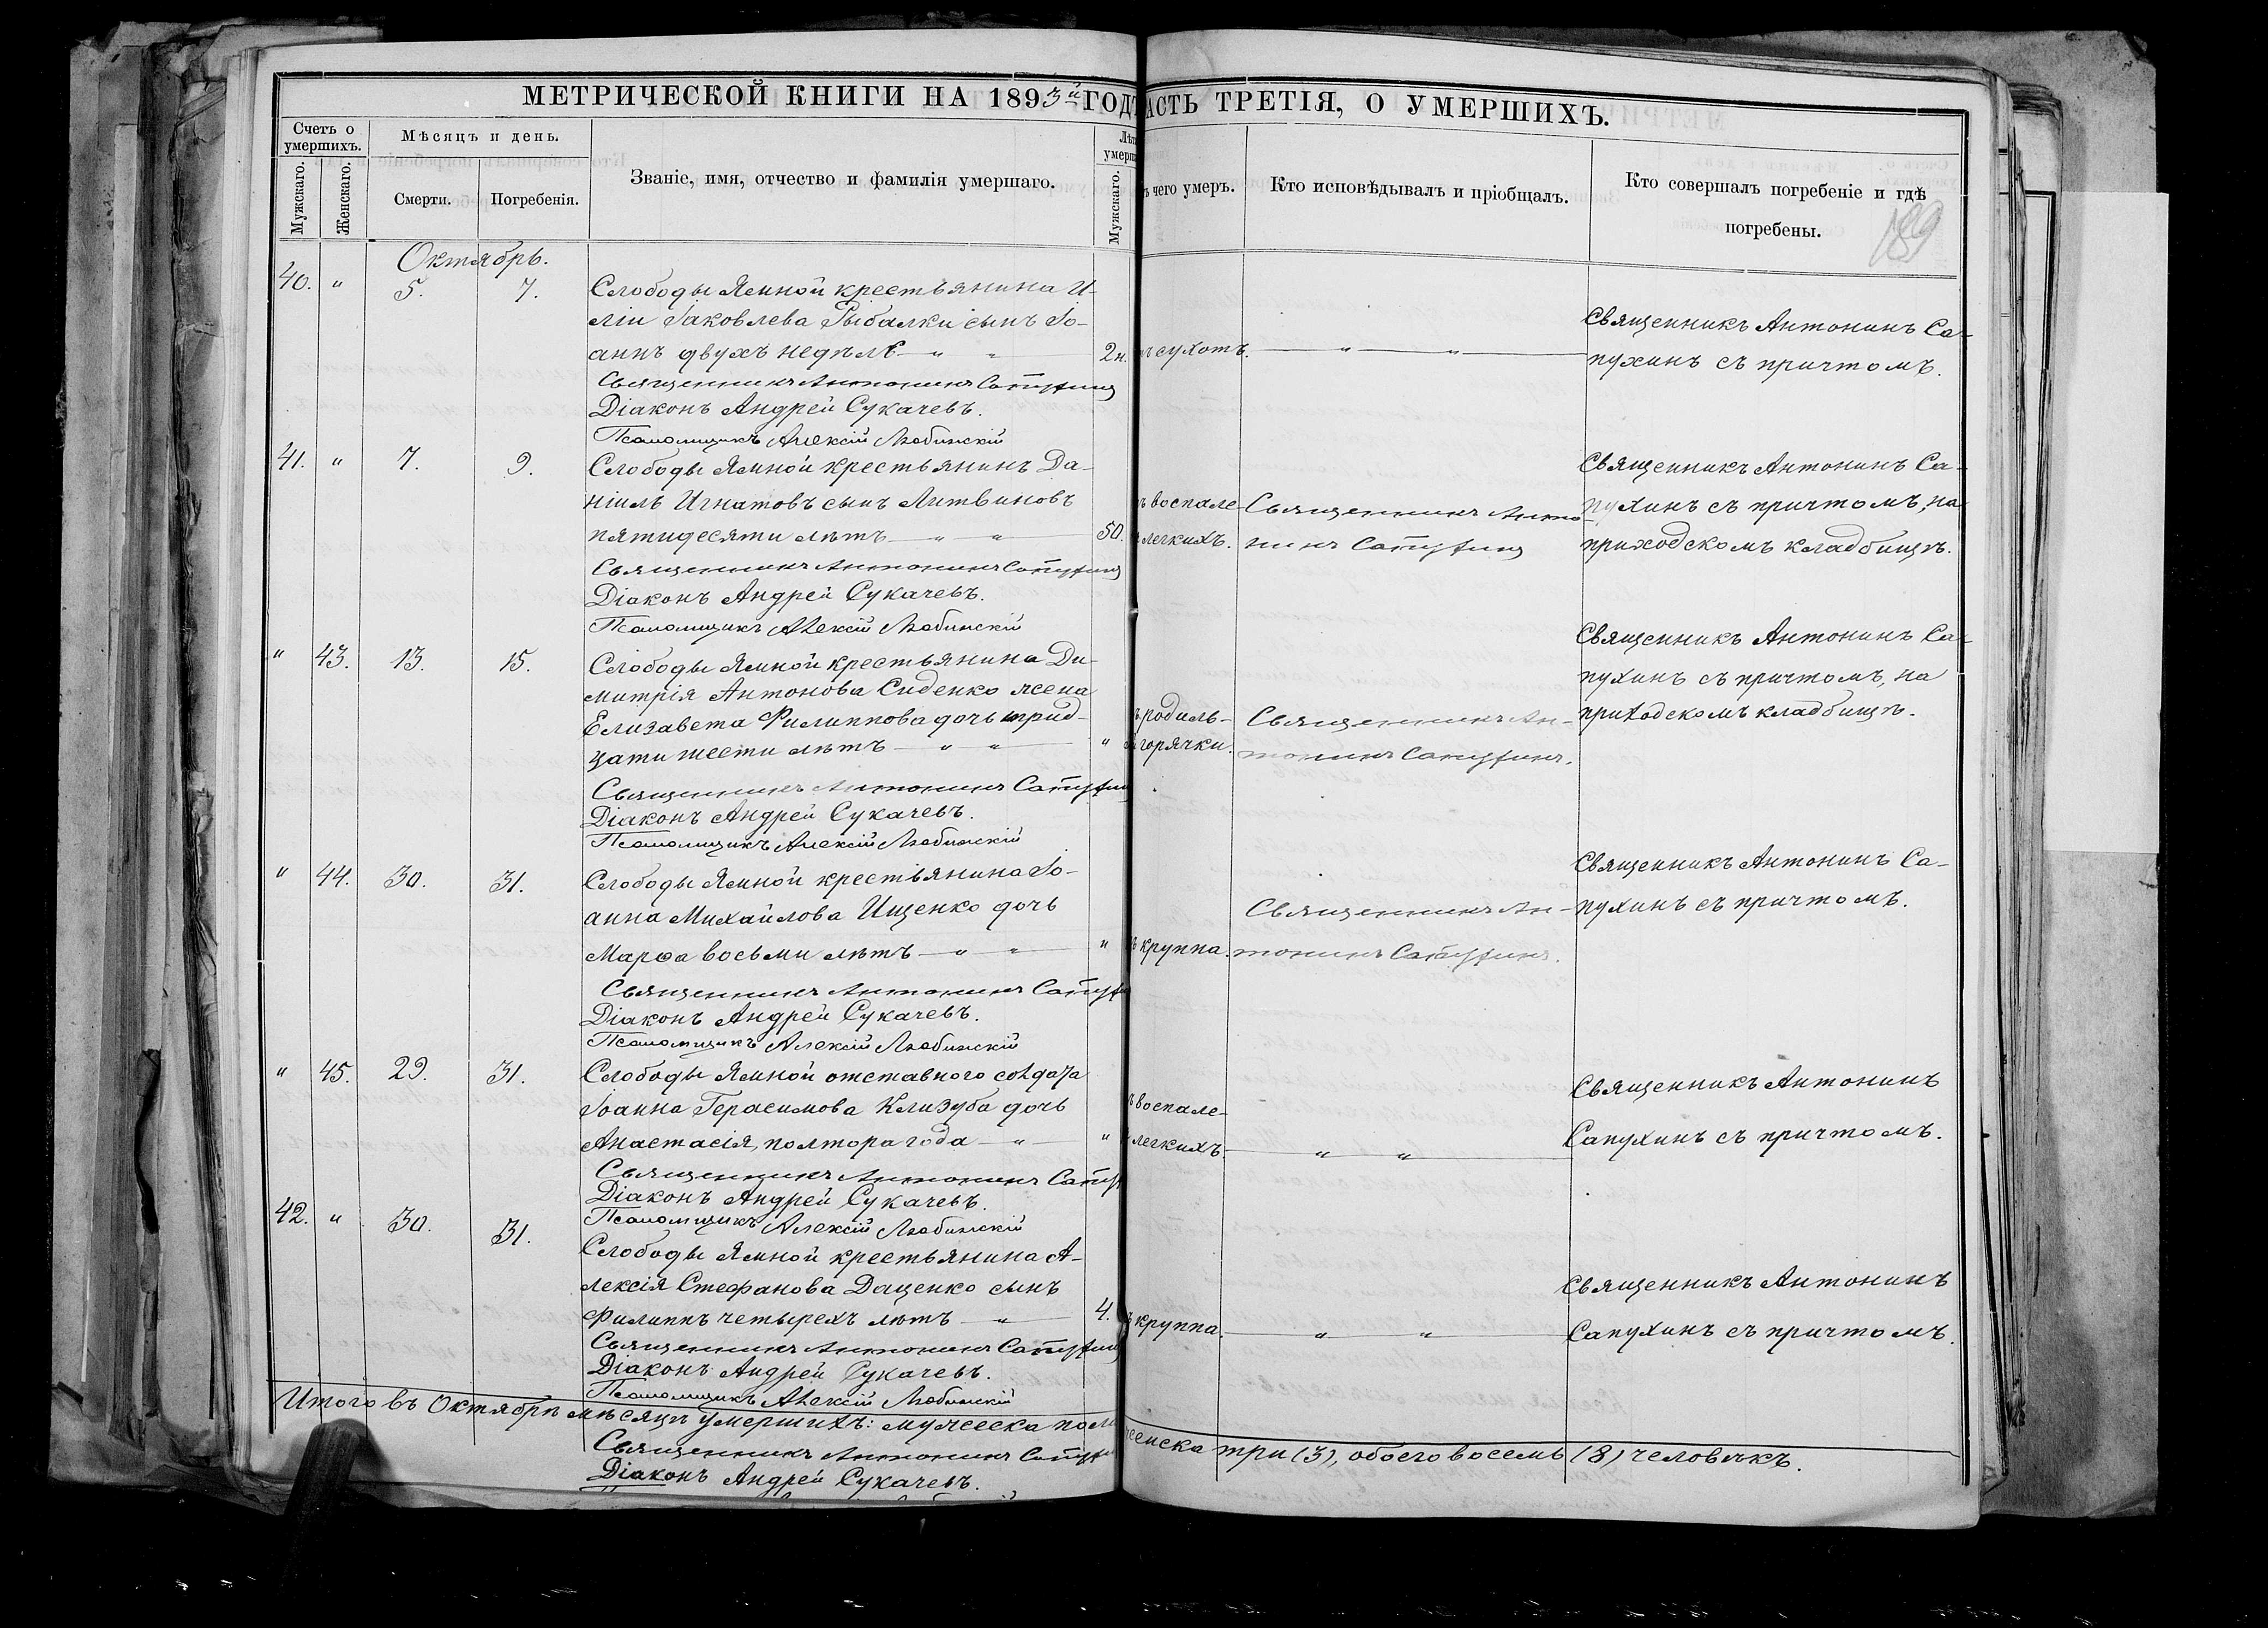 МЕТРИЧЕСКОЙ КНИГИ НА 1893й ГОДЪ
АСТЬ ТРЕТІЯ, О УМЕРШИХЪ.
Счетъ о умершихъ.
Мѣсяцъ и день.
Званіе, имя, отчество и фамилія умершаго.
Мужскаго.
Женскаго.
Смерти.
Погребенія.
Мужскаго.
чего умеръ.
Кто исповѣдывалъ и пріобщалъ.
Кто совершалъ погребеніе и гдѣ
погребены.
189
Октябрь.
40. " 5. 7. Слободы Ямной крестьянина И-
ліи Іаковлева Рыбалки сынъ Іо-
аннъ двухъ недѣль — " — " — 2 н. сухотъ. — " — " —
Священникъ Антонинъ Са-
пухинъ съ причтомъ.
Священникъ Антонинъ Сапухинъ
Діаконъ Андрей Сукачевъ.
Псаломщикъ Алексій Любинскій
41. " 7. 9. Слободы Ямной крестьянинъ Да-
ніилъ Игнатовъ сынъ Литвиновъ
пятидесяти лѣтъ — " — " — 50.
воспале-
легкихъ.
Священникъ Анто-
нинъ Сапухинъ
Священникъ Антонинъ Са-
пухинъ съ причтомъ, на
приходскомъ кладбищѣ.
Священникъ Антонинъ Сапухинъ
Діаконъ Андрей Сукачевъ.
Псаломщикъ Алексій Любинскій
" 43. 13. 15. Слободы Ямной крестьянина Ди-
митрія Антонова Сиденко жена
Елизавета Филиппова дочь трид-
цати шести лѣтъ — " — " — "
родиль-
горячки.
Священникъ Ан-
тонинъ Сапухинъ.
Священникъ Антонинъ Са-
пухинъ съ причтомъ, на
приходскомъ кладбищѣ.
Священникъ Антонинъ Сапухин
Діаконъ Андрей Сукачевъ.
Псаломщикъ Алексій Любинскій
" 44. 30. 31. Слободы Ямной крестьянина Іо-
анна Михайлова Ищенко дочь
Марѳа восьми лѣтъ — " — " — "
круппа.
Священникъ Ан-
тонинъ Сапухинъ.
Священникъ Антонинъ Са-
пухинъ съ причтомъ.
Священникъ Антонинъ Сапух
Діаконъ Андрей Сукачевъ.
Псаломщикъ Алексій Любинскій
" 45. 29. 31. Слободы Ямной отставного солдата
Іоанна Герасимова Клизуба дочь
Анастасія, полтора года — " — "
воспале-
легкихъ. — " — " —
Священникъ Антонинъ
Сапухинъ съ причтомъ.
Священникъ Антонинъ Сапу
Діаконъ Андрей Сукачевъ.
Псаломщикъ Алексій Любинскій
42. " 30. 31. Слободы Ямной крестьянина А-
лексія Стефанова Даценко сынъ
Филиппъ четырехъ лѣтъ — " — 4.
круппа. — " — " —
Священникъ Антонинъ
Сапухинъ съ причтомъ.
Священникъ Антонинъ Сапухин
Діаконъ Андрей Сукачевъ.
Псаломщикъ Алексій Любинскій
Итого въ Октябрѣ мѣсяцѣ умершихъ: мужеска пола
женска три (3), обоего восемь (8) человѣкъ.
Священникъ Антонинъ Сапух
Діаконъ Андрей Сукачевъ.